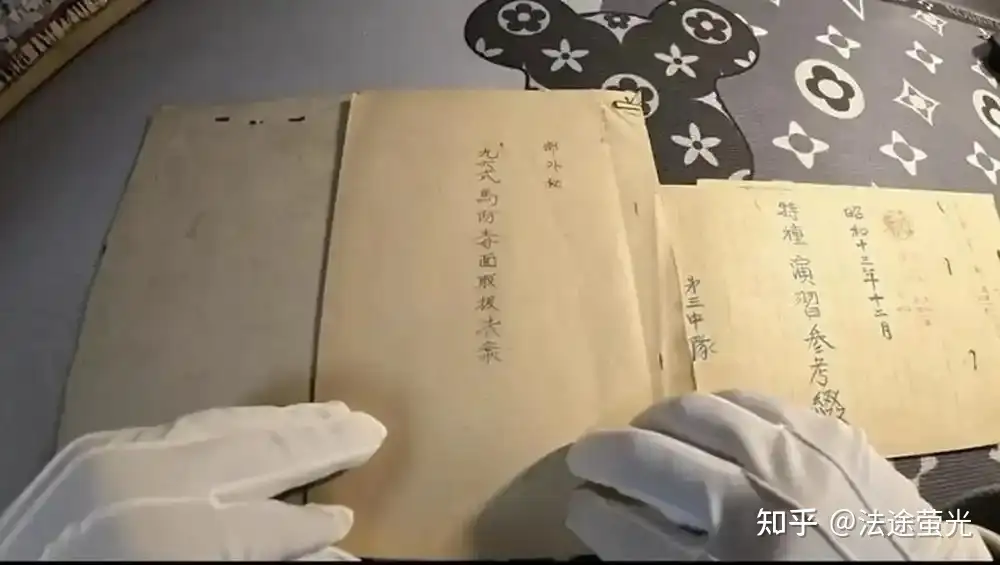 昭和十三年十二月
特種演習参考綴
第三中隊
部外秘
九六式馬防毒面取扱法案
知乎 @法途萤光